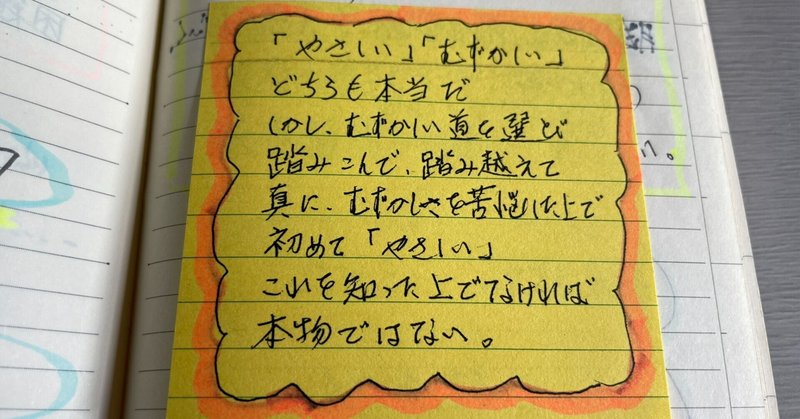 「やさしい」「むずかしい」
どちらも本当だ
しかし、むずかしい道を選び
踏みこんで、踏み越えて
真に、むずかしさを苦悩した上で
初めて「やさしい」
これを知った上でなければ
本物ではない。